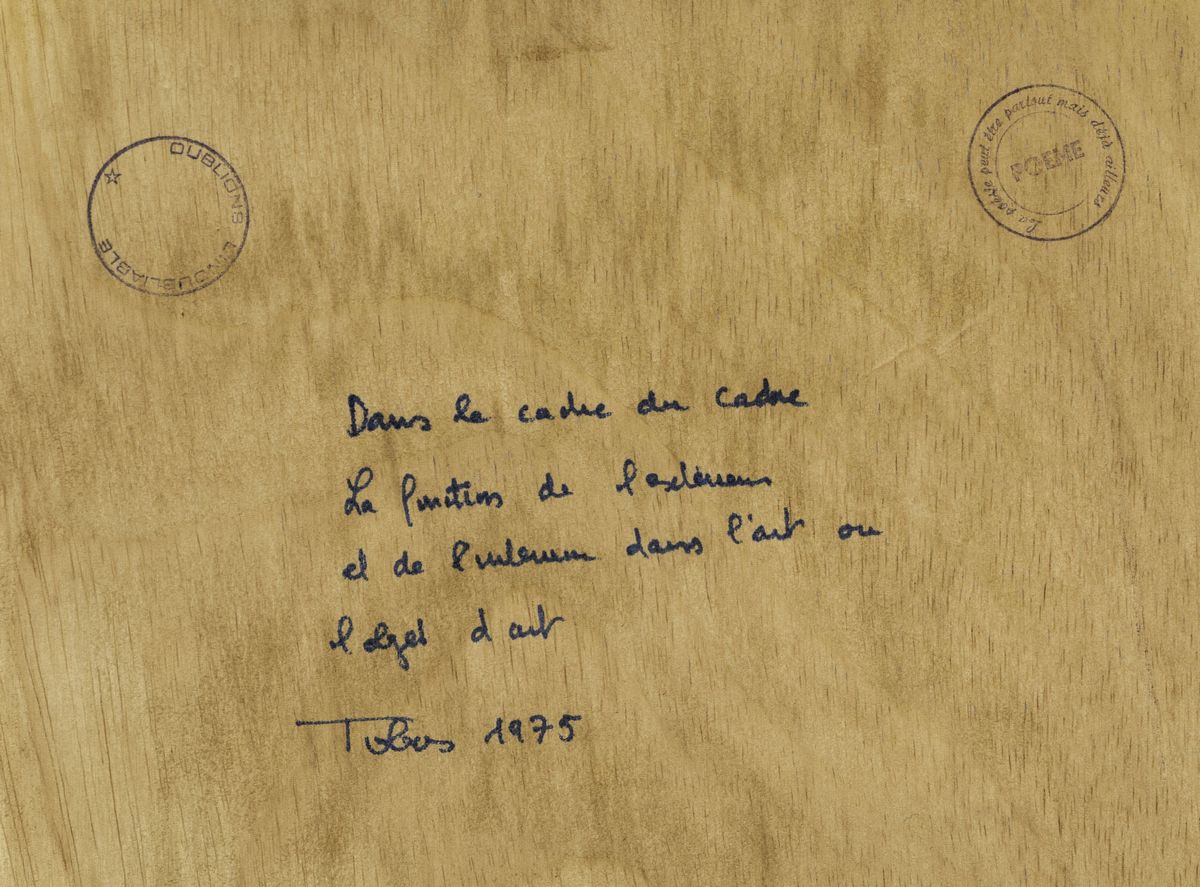 OUBLIONS L'INOUBLIABLE
La poésie peut être partout mais déjà ailleurs
POEME
Dans le cadre du cadre
La fonction de l'extérieur
et de l'intérieur dans l'art ou
l'objet d'art
1975